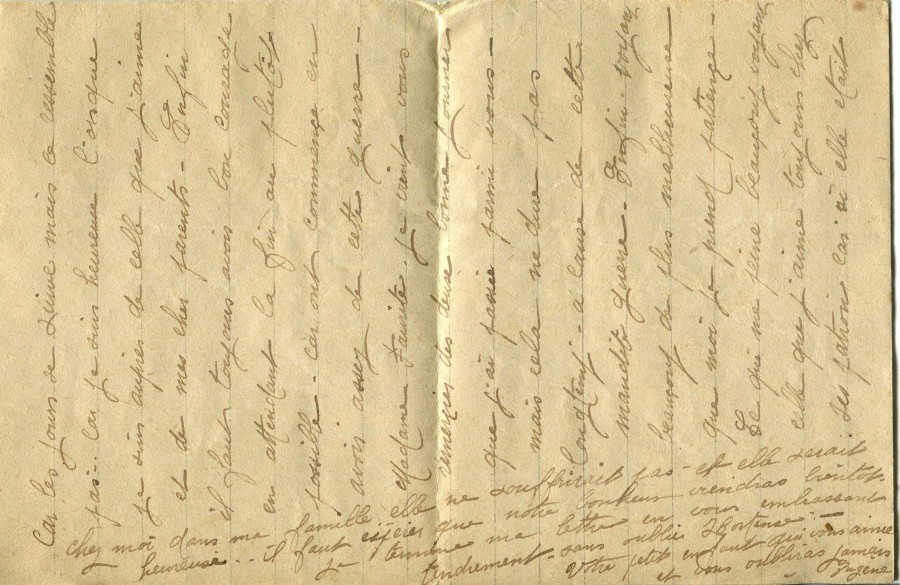 Car les jours se suive mais ce ressemble
pas - car je suis heureuse l'orsque
je suis aupres de celle que j'aime
et de mes cher parents - Enfin
il faut toujours avoir bon courage
en attendant la fin au plutôt
possible - car ont commence en
avoir assez de cette guerre -
Madame Faurite je vient vous
remerciez des deux bonne journée
que j'ai passée parmi vous -
mais cela ne dure pas
longtemps - a cause de cette
maudite guerre - Enfin voyant
beaucoup de plus malheureuse
que moi je prend patience -
Ce qui me peine beaucoup voyant
celle que j'aime toujours chez
ses patron car si elle etait
chez moi dans ma famille elle ne souffrirait pas - et elle serait
heureuse .. il faut espérer que notre bonheur viendras bientot -
je termine ma lettre en vous embrassant
tendrement - sans oublier Hortense -
Votre petit enfant qui vous aime
et vous oubliras jamais
Eugene